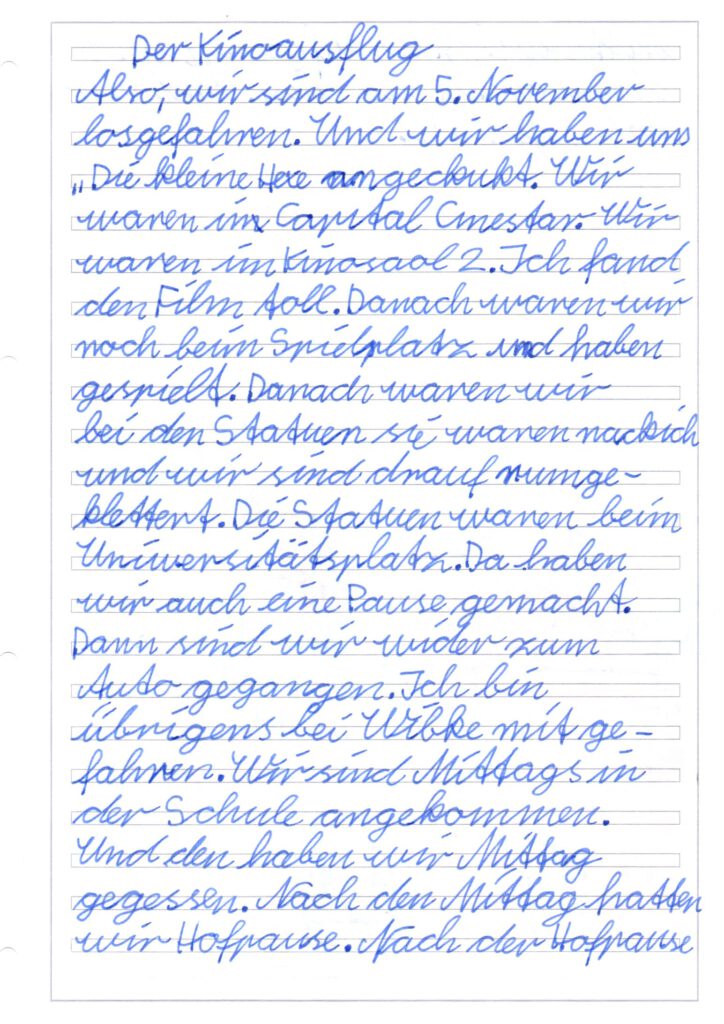 Der Kinoausflug
Also, wir sind am 5. November
losgefahren. Und wir haben uns
„Die kleine Hexe angeckukt. Wir
waren im Capital Cinestar. Wir
waren im Kinosaal 2. Ich fand
den Film toll. Danach waren wir
noch beim Spielplatz und haben
gespielt. Danach waren wir
bei den Statuen sie waren nackich
und wir sind drauf rumge-
klettert. Die Statuen waren beim
Universitätsplatz. Da haben
wir auch eine Pause gemacht.
Dann sind wir wider zum
Auto gegangen. Ich bin
übrigens bei Wibke mit ge-
fahren. Wir sind Mittags in
der Schule angekommen.
Und den haben wir Mittag
gegessen. Nach den Mittag hatten
wir Hofpause. Nach der Hofpause